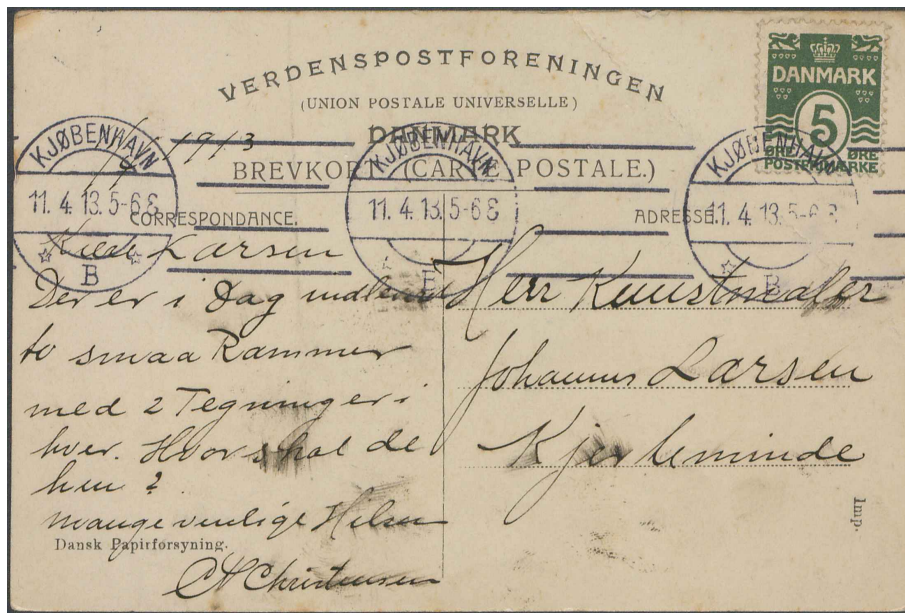 VERDENSPOSTFORENINGEN
(UNION POSTALE UNIVERSELLE)
DANMARK
BREVKORT. (CARTE POSTALE.)
DANMARK
5
ØRE
POSTFRIMÆRKE
KJØBENHAVN
11. 4. 13. 5-6 E
B
KJØBENHAVN
11. 4. 13. 5-6 E
KJØBENHAVN
11. 4. 13. 5-6 E
B
11/4 1913
CORRESPONDANCE.
Kære Larsen
Der er i Dag
to smaa Rammer
med 2 Tegninger i
hver. Hvor skal de
hen?
mange venlige Hilsen
CH Christensen
Dansk Papirforsyning.
ADRESSE.
Herr Kunstmaler
Johannes Larsen
Kjerteminde
Imp.